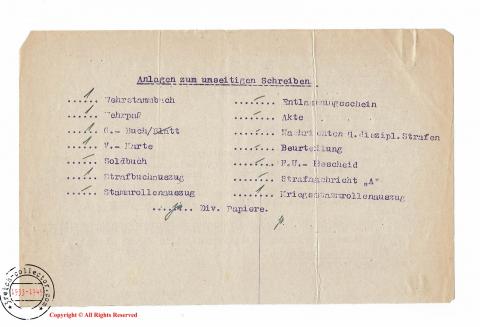 Anlagen zum umseitigen Schreiben.
...1... Wehrstammbuch
...1... Wehrpaß
...1... G.- Buch/Blatt
...1... V.- Karte
...-... Soldbuch
...1... Strafbuchauszug
...-... Stammrollenauszug
...-... Entlassungsschein
...-... Akte
...-... Nachrichten d.diszipl.Strafen
...-... Beurteilung
...-... F.U.- Bescheid
...-... Strafnachricht „A"
...1... Kriegsstammrollenauszug
... Div. Papiere.
reich-collector.com
1933-1945
Copyright © All Rights Reserved